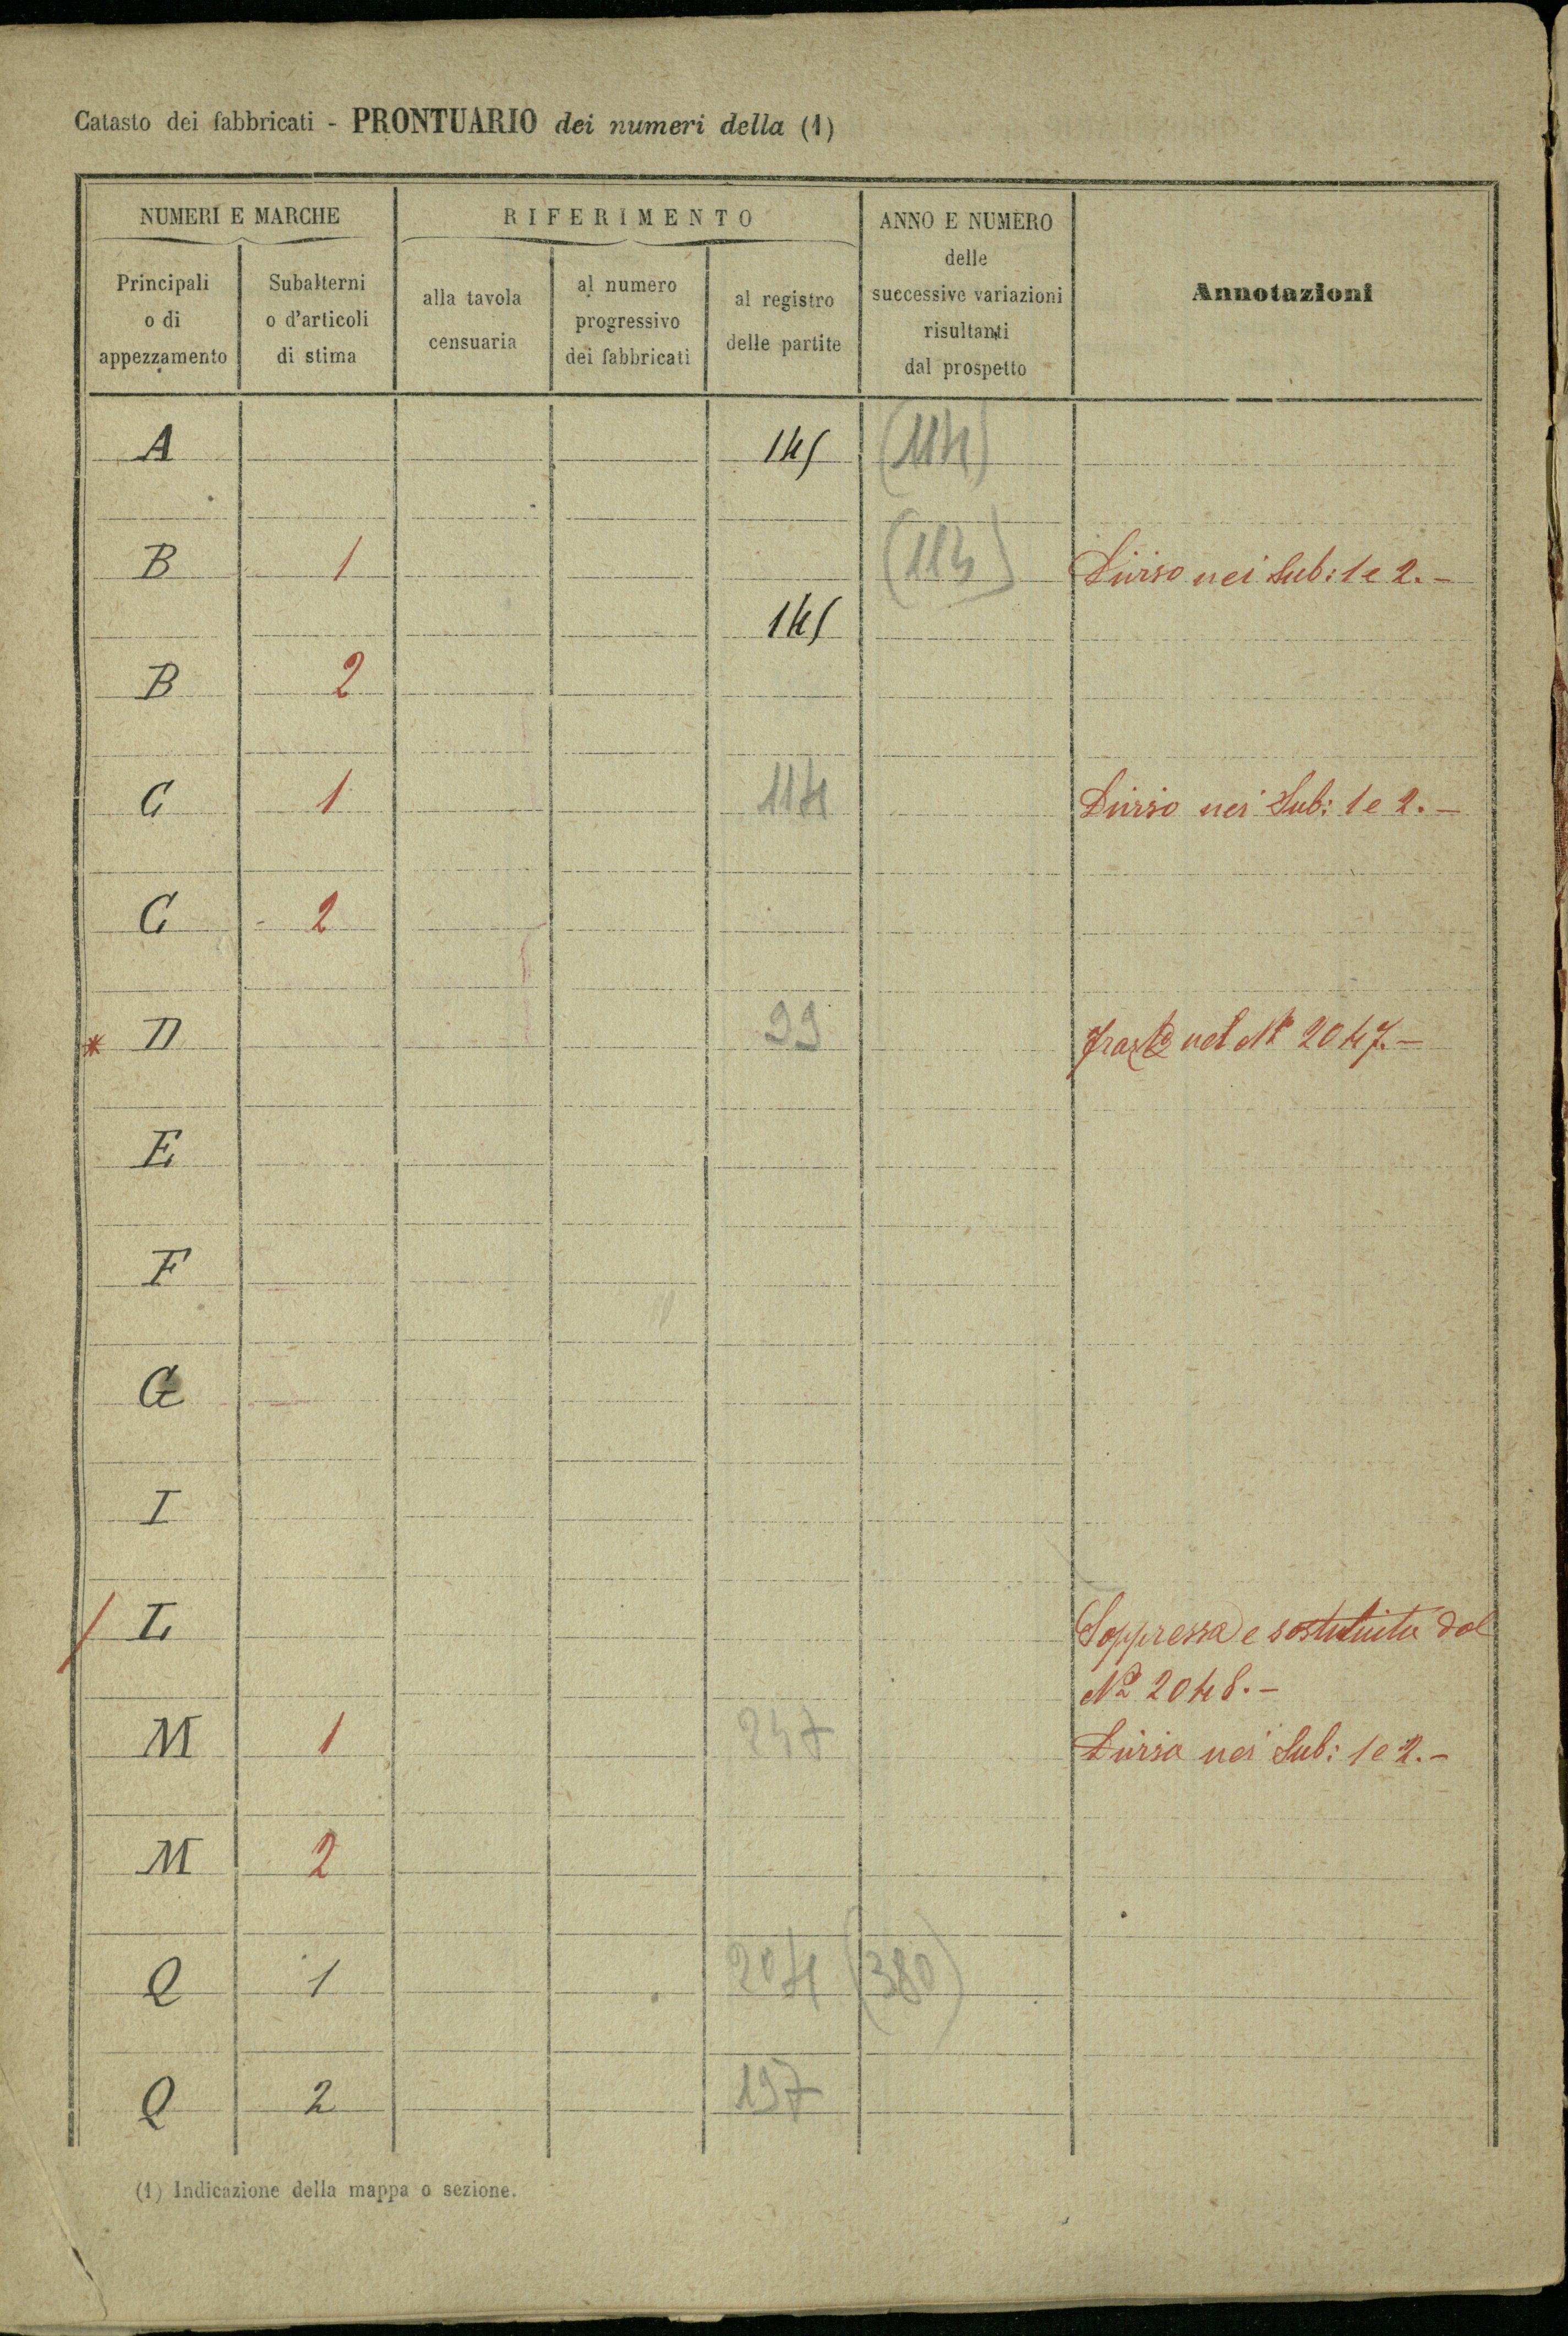 Catasto dei fabbricati - PRONTUARIO dei numeri della (1)
NUMERI E MARCHE
RIFERIMENTO
ANNO E NUMERO
delle
successive variazioni
risultanti
dal prospetto
Annotazioni
Principali
o di
appezzamento
Subalterni
o d'articoli
di stima
alla tavola
censuaria
al numero
progressivo
dei fabbricati
al registro
delle partite
A 145 (114)
B 1 Diviso nei Sub: 1 e 2. -
145
B 2
C 1 114 Diviso nei Sub: 1 e 2. -
C 2
* D 99 nel No 2047. -
E
F
G
I
/ L Soppressa e sostituita dal
No 2048. -
M 1 247 Divisa nei Sub: 1 e 2. -
M 2
Q 1 204 (380)
Q 2 197
(1) Indicazione della mappa o sezione.